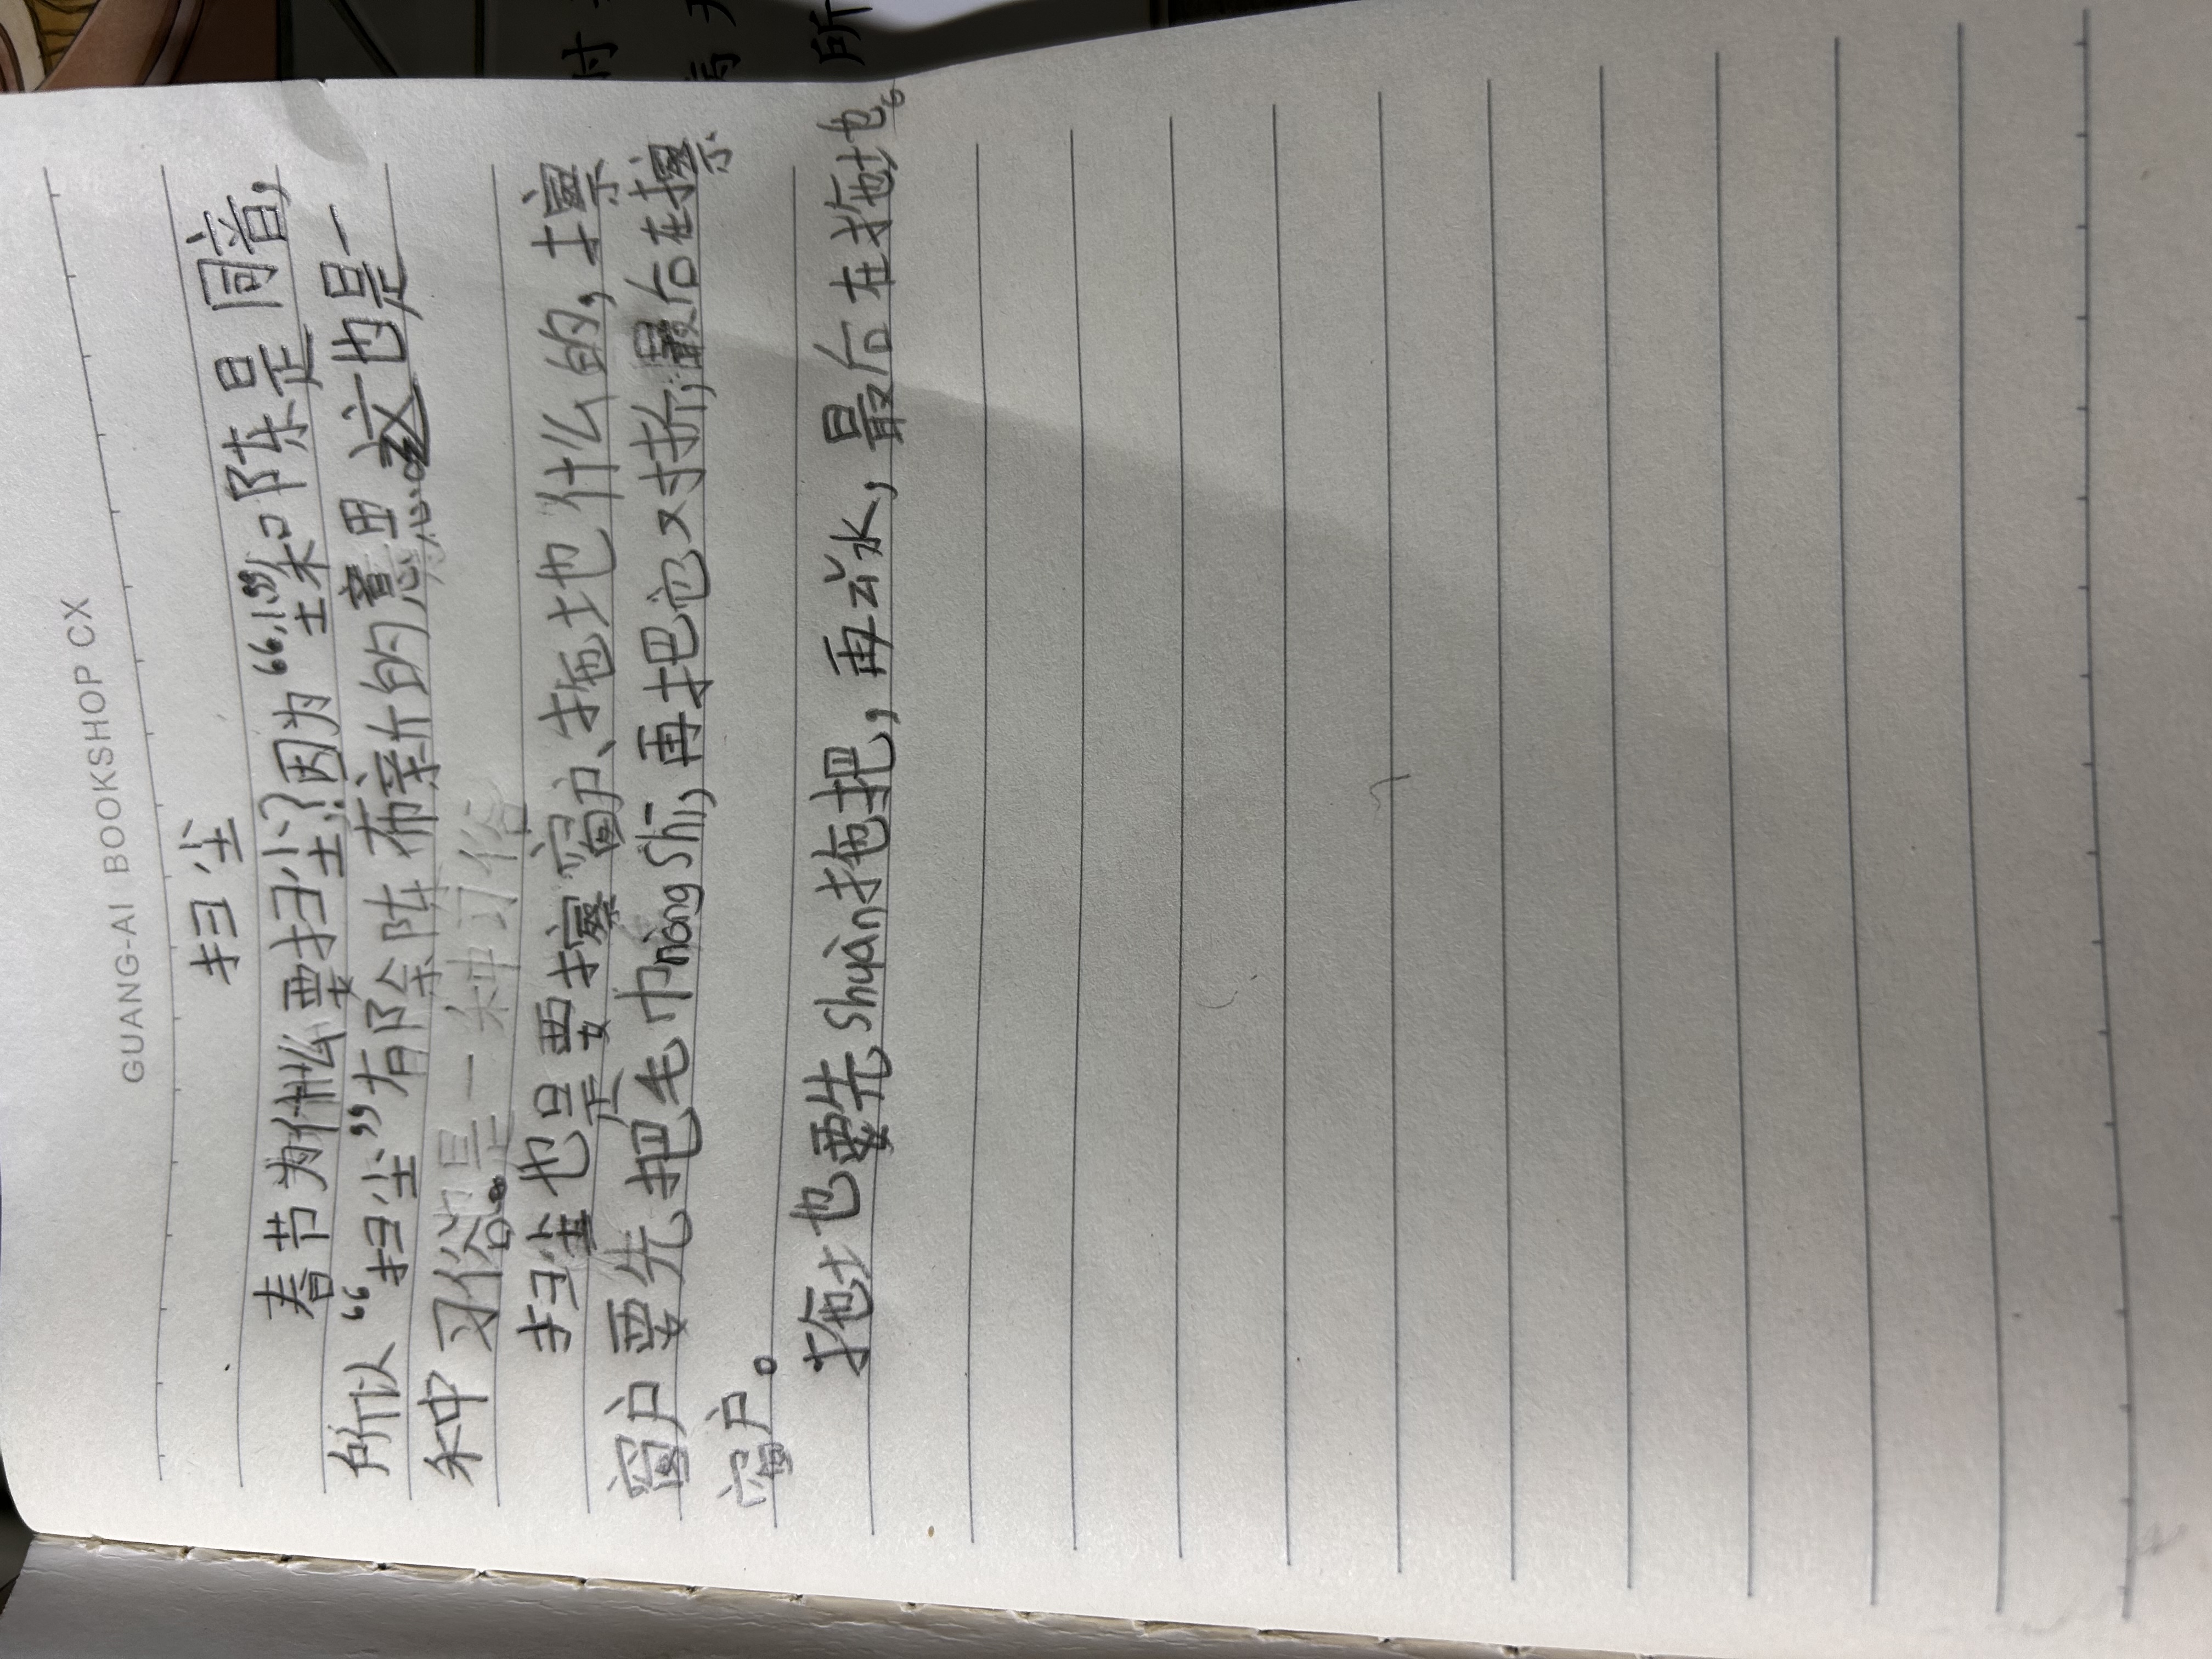 GUANG-AI BOOKSHOP CX
扫尘
春节为什么要扫尘?因为“尘”和陈是同音,
所以“扫尘”有除陈布新的意思。这也是一
种习俗。
扫尘也是要擦窗户、拖土也什么的,擦
窗户要先把毛巾nòng shī,再把它对折,最后在擦
窗户。
拖土也要先shuàn拖把,再zǐ水,最后在拖土也。
所